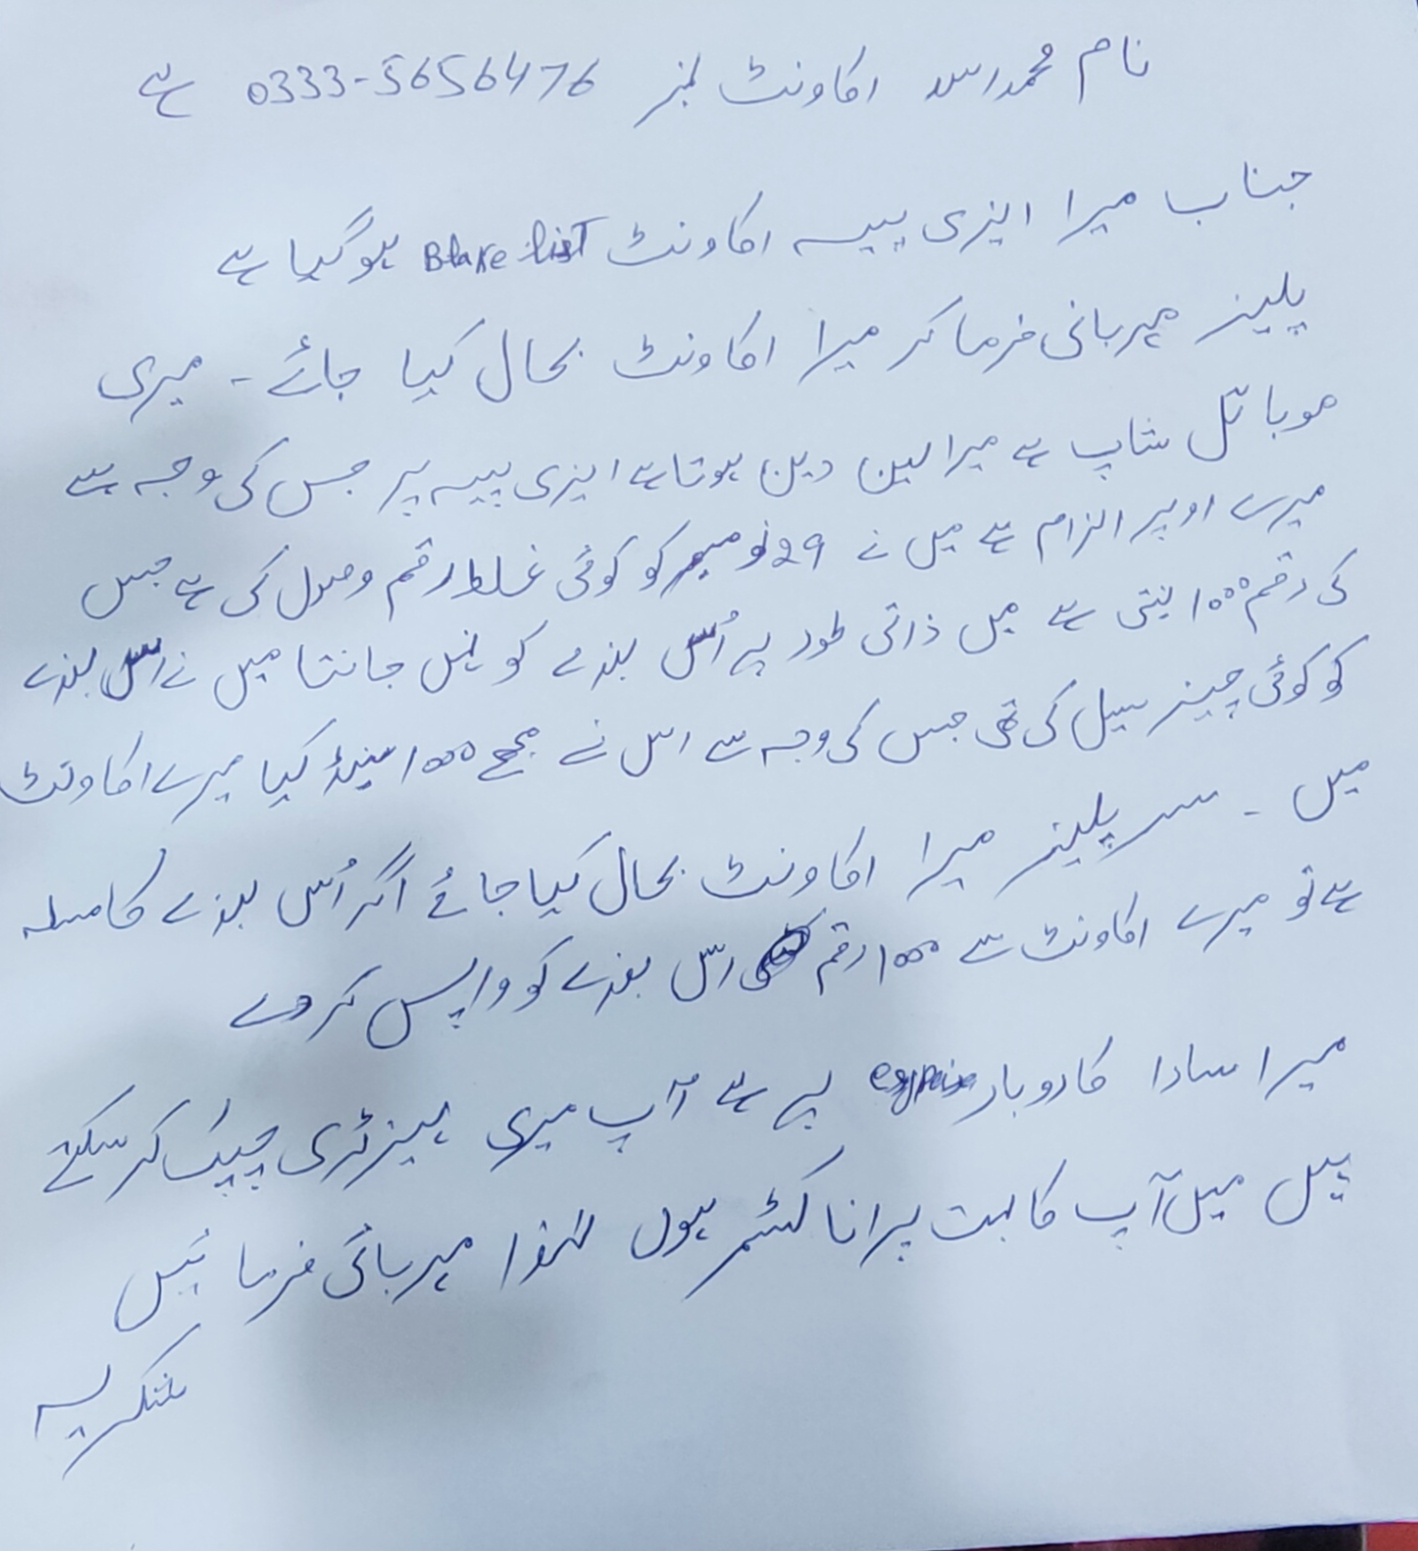 نام محمد اسد اکاونٹ نمبر 0333-5656476 ہے
جناب میرا ایزی پیسہ اکاونٹ Blake list ہوگیا ہے
پلیز مہربانی فرما کر میرا اکاونٹ بحال کیا جائے - میری
موبائل شاپ ہے میرا لین دین ہوتا ہے ایزی پیسہ پر جس کی وجہ سے
میرے اوپر الزام ہے میں نے 29 نومبر کو کوئی غلط رقم وصول کی ہے جس
کی رقم 1000 بنتی ہے میں ذاتی طور پر اُس بندے کو نہیں جانتا میں نے اس بندے
کو کوئی چیز سیل کی تھی جس کی وجہ سے اس نے مجھے 1000 سینڈ کیا میرے اکاونٹ
میں - سر پلیز میرا اکاونٹ بحال کیا جائے اگر اُس بندے کا مسلہ
ہے تو میرے اکاونٹ سے 1000 رقم اس بندے کو واپس کر دے
میرا سارا کاروبار پے ہے آپ میری ہیزٹری چیک کر سکتے
ہیں میں آپ کا بہت پرانا کسٹمر ہوں لہذا مہربانی فرمائیں
شکریہ